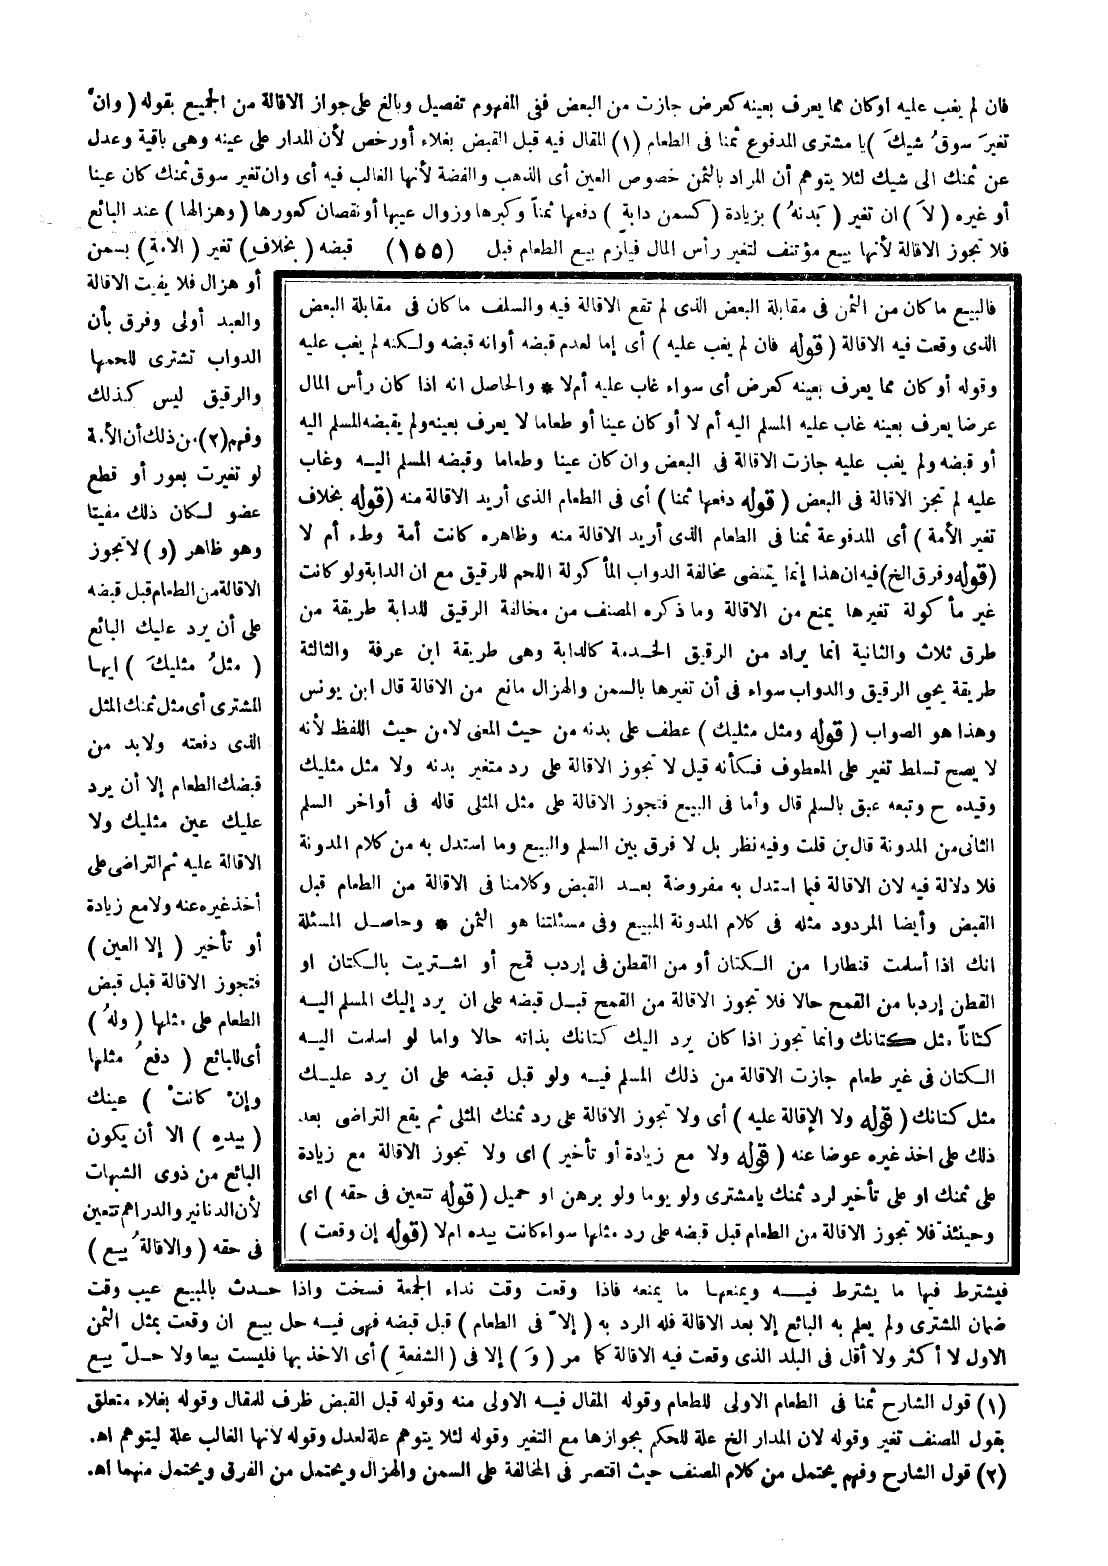 فان لم يغب عليه اوكان مما يعرف بعينه كعرض جازت من البعض ففى المفهوم تفصيل وبالغ على جواز الاقالة من الجميع بقوله ( وانْ
تغيرَ سوقُ شيكَ ) يا مشترى المدفوع ثمنا فى الطعام (١) المقال فيه قبل القبض بغلاء أورخص لأن المدار على عينه وهى باقية وعدل
عن ثمنك الى شيك لئلا يتوهم أن المراد بالثمن خصوص العين أى الذهب والفضة لأنها الغالب فيه أى وان تغير سوق ثمنك كان عينا
أو غيره ( لاَ ) ان تغير ( بَدنهُ ) بزيادة ( كسمن دابة ) دفعها ثمناً وكبرها وزوال عيبها أو نقصان كعورها ( وهزالها ) عند البائع
فلا تجوز الاقالة لأنها بيع مؤتنف لتغير رأس المال فيلزم بيع الطعام قبل (١٥٥) قبضه ( بخلافِ ) تغير ( الامةِ ) بسمن
أو هزال فلا يفيت الاقالة
والعبد أولى وفرق بأن
الدواب تشترى للحمها
والرقيق ليس كذلك
وفهم (٢) من ذلك أن الأمة
لو تغيرت بعور أو قطع
عضو لكان ذلك مفيتا
وهو ظاهر (و) لا تجوز
الاقالة من الطعام قبل قبضه
على أن يرد عليك البائع
( مثلُ مثليكَ ) ايها
المشترى أى مثل ثمنك المثل
الذى دفعته ولابد من
قبضك الطعام إلا أن يرد
عليك عين مثليك ولا
الاقالة عليه ثم التراضى على
أخذ غيره عنه ولا مع زيادة
أو تأخير ( إلا العين )
فتجوز الاقالة قبل قبض
الطعام على مثلها ( ولهُ )
أى للبائع ( دفعُ مثلها
وإنْ كانتْ ) عينك
( بيدهِ ) الا أن يكون
البائع من ذوى الشبهات
لأن الدنانير والدراهم تتعين
فى حقه ( والاقالةُ بيع )
فالبيع ما كان من الثمن فى مقابلة البعض الذى لم تقع الاقالة فيه والسلف ما كان فى مقابلة البعض
الذى وقعت فيه الاقالة ( قوله فان لم يغب عليه ) أى إما لعدم قبضه أوانه قبضه ولكنه لم يغب عليه
وقوله أو كان مما يعرف بعينه كعرض أى سواء غاب عليه أم لا * والحاصل انه اذا كان رأس المال
عرضا يعرف بعينه غاب عليه المسلم اليه أم لا أو كان عينا أو طعاما لا يعرف بعينه ولم يقبضه المسلم اليه
أو قبضه ولم يغب عليه جازت الاقالة فى البعض وان كان عينا وطعاما وقبضه المسلم اليه وغاب
عليه لم تجز الاقالة فى البعض ( قوله دفعها ثمنا ) أى فى الطعام الذى أريد الاقالة منه ( قوله بخلاف
تغير الأمة ) أى المدفوعة ثمنا فى الطعام الذى أريد الاقالة منه وظاهره كانت أمة وطء أم لا
( قوله وفرق الخ ) فيه ان هذا إنما يقتضى مخالفة الدواب المأكولة اللحم للرقيق مع ان الدابة ولو كانت
غير مأكولة تغيرها يمنع من الاقالة وما ذكره المصنف من مخالفة الرقيق للدابة طريقة من
طرق ثلاث والثانية انما يراد من الرقيق الخدمة كالدابة وهى طريقة ابن عرفة والثالثة
طريقة يحيى الرقيق والدواب سواء فى أن تغيرها بالسمن والهزال مانع من الاقالة قال ابن يونس
وهذا هو الصواب ( قوله ومثل مثليك ) عطف على بدنه من حيث المعنى لا من حيث اللفظ لأنه
لا يصح تسلط تغير على المعطوف فكأنه قيل لا تجوز الاقالة على رد متغير بدنه ولا مثل مثليك
وقيده ح وتبعه عبق بالسلم قال وأما فى البيع فتجوز الاقالة على مثل المثلى قاله فى أواخر السلم
الثانى من المدونة قال بن قلت وفيه نظر بل لا فرق بين السلم والبيع وما استدل به من كلام المدونة
فلا دلالة فيه لان الاقالة فيما استدل به مفروضة بعد القبض وكلامنا فى الاقالة من الطعام قبل
القبض وأيضا المردود مثله فى كلام المدونة المبيع وفى مسئلتنا هو الثمن * وحاصل المسئلة
انك اذا أسلمت قنطارا من الكتان أو من القطن فى إردب قمح أو اشتريت بالكتان او
القطن إردبا من القمح حالا فلا تجوز الاقالة من القمح قبل قبضه على ان يرد إليك المسلم اليه
كتاناً مثل كتانك وانما تجوز اذا كان يرد اليك كتانك بذاته حالا واما لو اسلمت اليه
الكتان فى غير طعام جازت الاقالة من ذلك المسلم فيه ولو قبل قبضه على ان يرد عليك
مثل كتانك ( قوله ولا الإقالة عليه ) أى ولا تجوز الاقالة على رد ثمنك المثلى ثم يقع التراضى بعد
ذلك على اخذ غيره عوضا عنه ( قوله ولا مع زيادة أو تأخير ) اى ولا تجوز الاقالة مع زيادة
على ثمنك او على تأخير لرد ثمنك يا مشترى ولو يوما ولو برهن او حميل ( قوله تتعين فى حقه ) اى
وحينئذ فلا تجوز الاقالة من الطعام قبل قبضه على رد مثلها سواء كانت بيده ام لا ( قوله إن وقعت )
فيشترط فيها ما يشترط فيه ويمنعها ما يمنعه فاذا وقعت وقت نداء الجمعة فسخت واذا حدث بالمبيع عيب وقت
ضمان المشترى ولم يعلم به البائع إلا بعد الاقالة فله الرد به ( إلاّ فى الطعام ) قبل قبضه فهى فيه حل بيع ان وقعت بمثل الثمن
الاول لا أكثر ولا أقل فى البلد الذى وقعت فيه الاقالة كما مر ( وَ ) إلا فى ( الشفعةِ ) أى الاخذ بها فليست بيعا ولا حلّ بيع
(١) قول الشارح ثمنا فى الطعام الاولى للطعام وقوله المقال فيه الاولى منه وقوله قبل القبض ظرف للمقال وقوله بغلاء متعلق
بقول المصنف تغير وقوله لان المدار الخ علة للحكم بجوازها مع التغير وقوله لئلا يتوهم علة لعدل وقوله لانها الغالب علة ليتوهم اهـ.
(٢) قول الشارح وفهم يحتمل من كلام المصنف حيث اقتصر فى المخالفة على السمن والهزال ويحتمل من الفرق ويحتمل منهما اهـ.